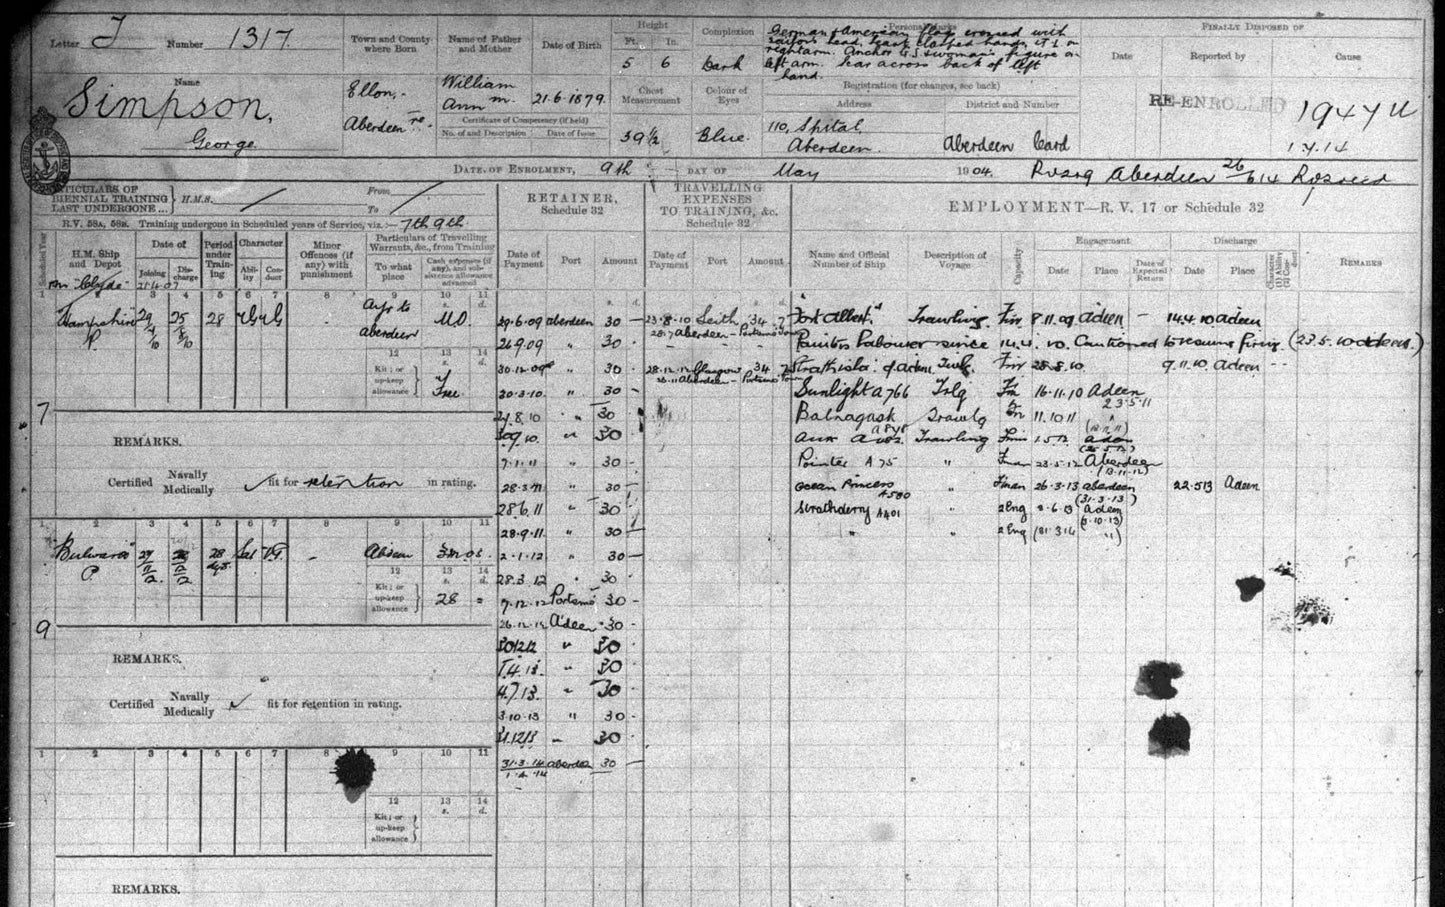 Letter T Number 1317
Name
Simpson,
George
Town and County where Born
Ellon,
Aberdeen re
Name of Father and Mother
William
Ann M.
Date of Birth
21.6.1879
Certificate of Competency (if held)
No. and Description Date of Issue
Height
Ft. In.
5 6
Chest Measurement
39 1/2
Complexion
Dark
Colour of Eyes
Blue
Personal Marks
German & American flags crossed with
sailors head, heart, clasped hands,
right arm. Anchor & woman's figure on
left arm. Scar across back of left
hand.
Registration (for changes, see back)
Address District and Number
110, Spital,
Aberdeen Aberdeen Card
FINALLY DISPOSED OF
Date Reported by Cause
RE-ENROLLED 1947 U
1.4.14
DATE OF ENROLMENT, 9th DAY OF May 1904. Aberdeen 26/6 14
PARTICULARS OF BIENNIAL TRAINING LAST UNDERGONE ... H.M.S. From To
R.V. 58A, 58B. Training undergone in Scheduled years of Service, viz.:— 7th 9th
RETAINER, Schedule 32
TRAVELLING EXPENSES TO TRAINING, &c. Schedule 32
EMPLOYMENT—R. V. 17 or Schedule 32
Scheduled Year
H.M. Ship and Depot
Date of Joining Discharge
Period under Training
Character Ability Conduct
Minor Offences (if any) with punishment
Particulars of Travelling Warrants, &c., from Training
To what place
Cash expenses (if any), and subsistence allowance advanced
Date of Payment Port Amount
Date of Payment Port Amount
Name and Official Number of Ship
Description of Voyage
Capacity
Engagement
Date Place Date of Expected Return
Discharge
Date Place
REMARKS
"Clyde" 21.4.07
1 2 3 4 5 6 7 8 9 10 11
Hampshire P 29/9/10 25/8/10 28 VG VG - Ayr to Aberdeen
12 13 14
Kit; or up-keep allowance Free
7
REMARKS.
Certified Navally Medically ✓ fit for retention in rating.
1 2 3 4 5 6 7 8 9 10 11
"Bulwark" P 28 dys Sat V.G. -
12 13 14
Kit; or up-keep allowance 28 -
9
REMARKS.
Certified Navally Medically ✓ fit for retention in rating.
1 2 3 4 5 6 7 8 9 10 11
12 13 14
Kit; or up-keep allowance
REMARKS.
29.6.09 Aberdeen 30 -
26.9.09 " 30
30.12.09 " 30
30.3.10 " 30 -
" 30
30.9.10 " 30
7.1.11 " 30
28.3.11 " 30
28.6.11 " 30
28.9.11 " 30 -
2.1.12 " 30 -
28.3.12 " 30
7.12.12 Portsmo 30 -
26.12.12 Adeen 30
30.12.12 " 30
1.4.13 " 30
4.7.13 " 30
3.10.13 " 30 -
31.12.13 " 30
31.3.14 Aberdeen 30 -
1.4.14
23.8.10 Leith 34 7
28.7 Aberdeen - Portsmo
28.12.12 Glasgow 34
Aberdeen - Portsmo
Fort Albert Trawling Fir 8.11.09 Adeen - 14.4.10 Adeen
Painters Labourer since 14.4.10. Cautioned to resume firing. (23.5.10
Strathisla of Adeen Fir 28.8.10 9.11.10 Adeen
Sunlight A 766 Trlg Fir 16.11.10 Adeen
23.5.11
Balnagask Trawlg Fir 11.10.11
Trawling Adeen
Pointer A 75 " 23.5.12 Aberdeen
(13.11.12)
Ocean Princess A 580 " 26.3.13 Aberdeen 22.5.13 Adeen
(31.3.13)
Strathderry A 401 " 2 Eng 2.6.13 Adeen
(9.10.13)
" " 2 Eng (31.3.14 ")